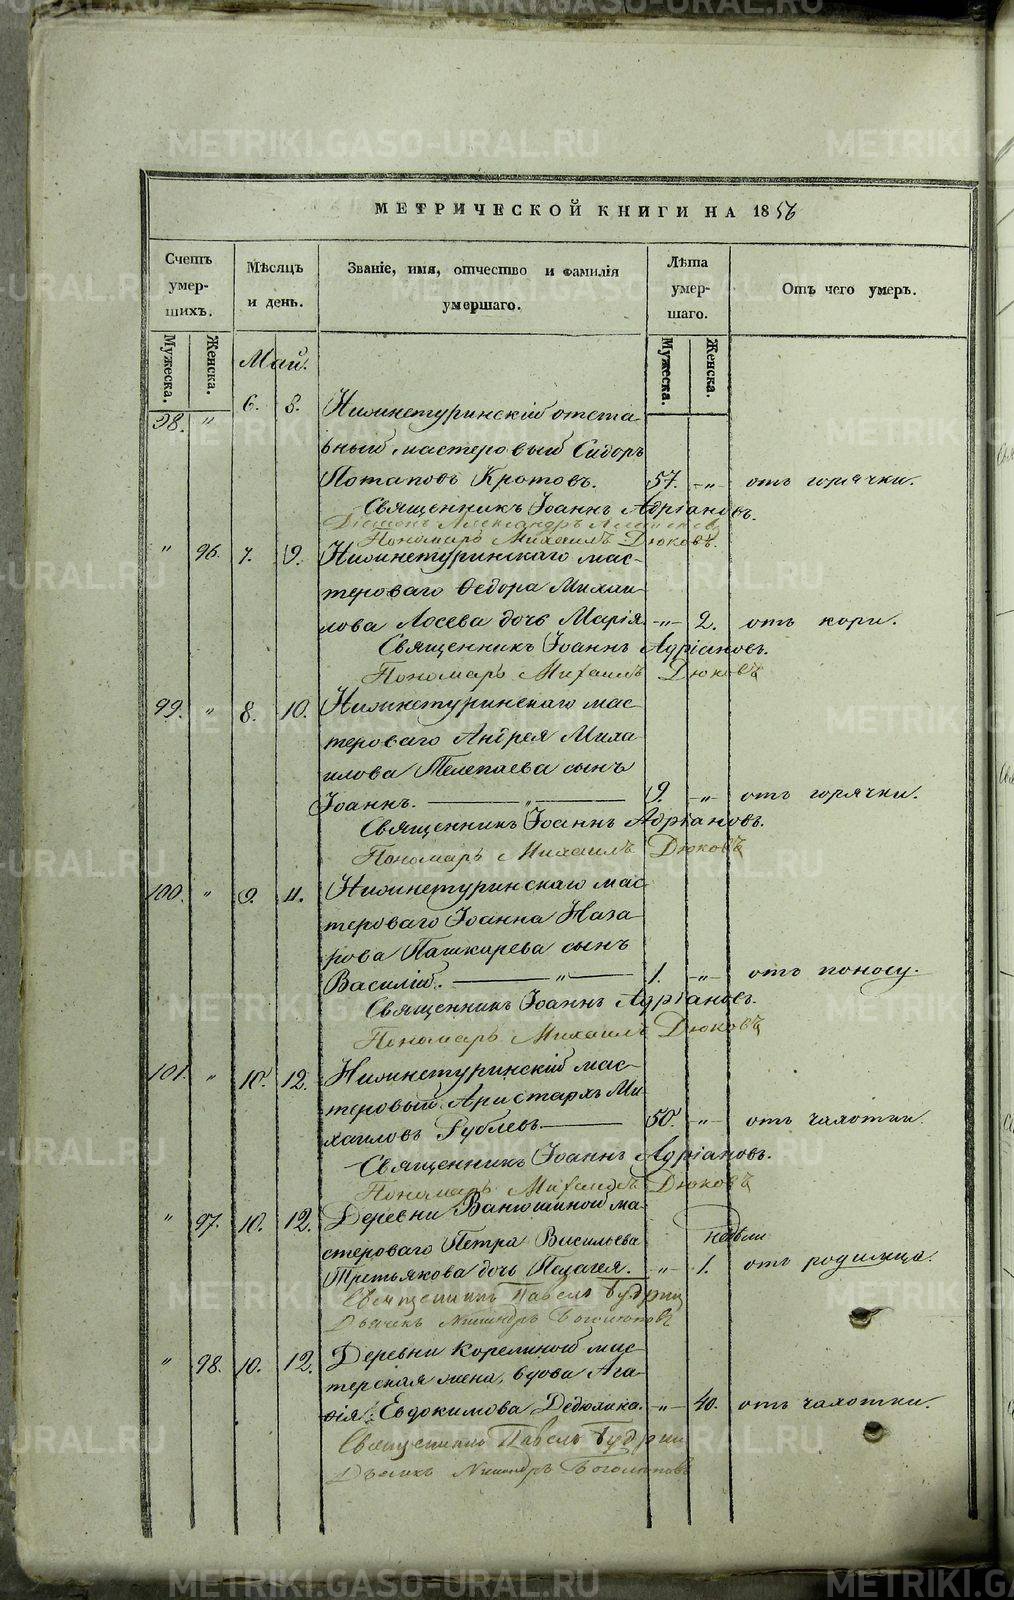 МЕТРИЧЕСКОЙ КНИГИ НА 1856
Счетъ умер-шихъ.
Мѣсяцъ и день.
Званіе, имя, отчество и фамилія умершаго.
Лѣта умер-шаго.
Отъ чего умеръ.
Мужеска. Женска.
Мужеска. Женска.
Май.
98. " 6. 8. Нижнетуринскій отста-
вный мастеровый Сидоръ
Потаповъ Кротовъ. 57. -"- отъ горячки.
Священникъ Іоаннъ Адріановъ.
Діаконъ Александръ
Пономарь Михаилъ Дюковъ.
" 96. 7. 9. Нижнетуринскаго мас-
тероваго Ѳедора Михаи-
лова Лосева дочь Марія -"- 2. отъ кори.
Священникъ Іоаннъ Адріановъ.
Пономарь Михаилъ Дюковъ
99. " 8. 10. Нижнетуринскаго мас-
тероваго Андрея Миха-
илова Телепаева сынъ
Іоаннъ. " 9. -"- отъ горячки.
Священникъ Іоаннъ Адріановъ.
Пономарь Михаилъ Дюковъ
100. " 9. 11. Нижнетуринскаго мас-
тероваго Іоанна Наза-
рова Пашкарева сынъ
Василій. " 1. -"- отъ поносу.
Священникъ Іоаннъ Адріановъ.
Пономарь Михаилъ Дюковъ
101. " 10. 12. Нижнетуринскій мас-
теровый Аристархъ Ми-
хаиловъ Рублевъ 50. -"- отъ чахотки.
Священникъ Іоаннъ Адріановъ.
Пономарь Михаилъ Дюковъ
" 97. 10. 12. Деревни Ванюшиной ма-
недѣли
стероваго Петра Васильева
Третьякова дочь Пелагея. -"- 1. отъ родимца.
Священникъ Павелъ Будрин
Дьячекъ
" 98. 10. 12. Деревни Корелиной мас-
терская жена, вдова Ага-
ѳія Евдокимова Дедюхина. -"- 40. отъ чахотки.
Священникъ Павелъ Будрин
Дьячекъ
METRIKI.GASO-URAL.RU